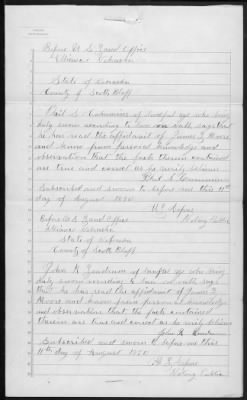 Before U S Land Office
Alliance Nebraska
State of Nebraska
County of Scotts Bluff
S. Cummins of lawful age who being
duly sworn according to law on oath says that
he has read the affidavit of James Moore
and knows from personal knowledge and
observation that the facts therein contained
are true and correct as he verily believes
S. Cummins
Subscribed and sworn to before me this 11th
day of August
Notary Public
Before U S Land Office
Alliance Nebraska
State of Nebraska
County of Scotts Bluff
John R. of lawful age who being
duly sworn according to law on oath says
that he has read the affidavit of James
Moore and knows from personal knowledge
and observation that the facts contained
therein are true and correct as he verily believes
John R.
Subscribed and sworn to before me this
11th day of August
Notary Public